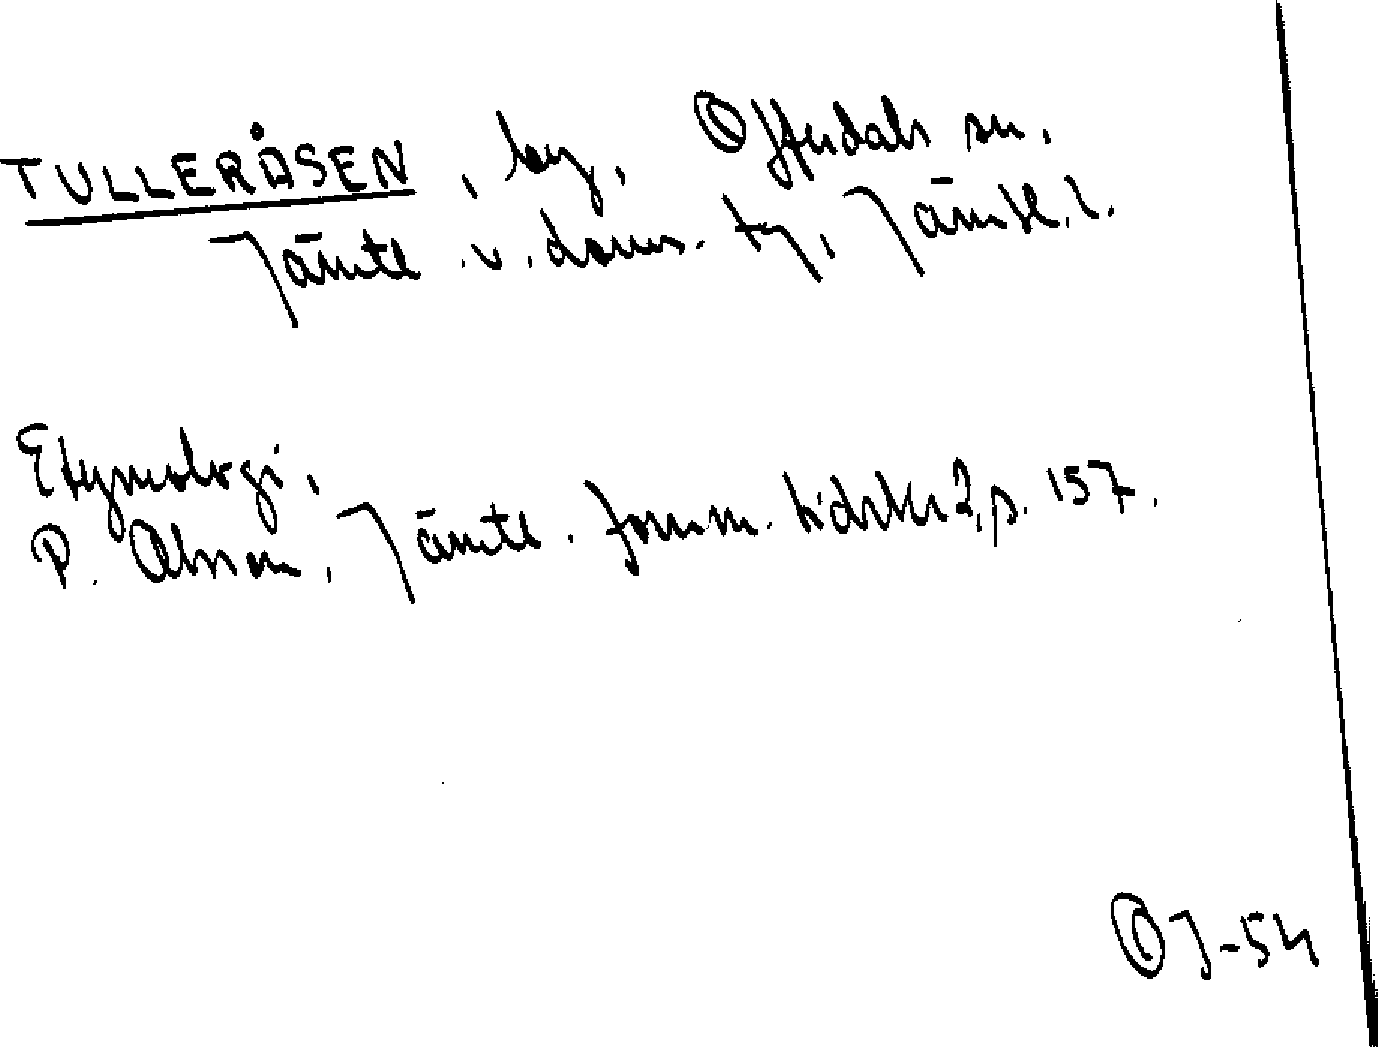 TULLERÅSEN, by, Offerdals sn.
Jämtl. v. doms. tg, Jämtl. l.
Etymologi.
P. Olsson, Jämtl. fornm. tidskr 2, p. 157.
OJ-54